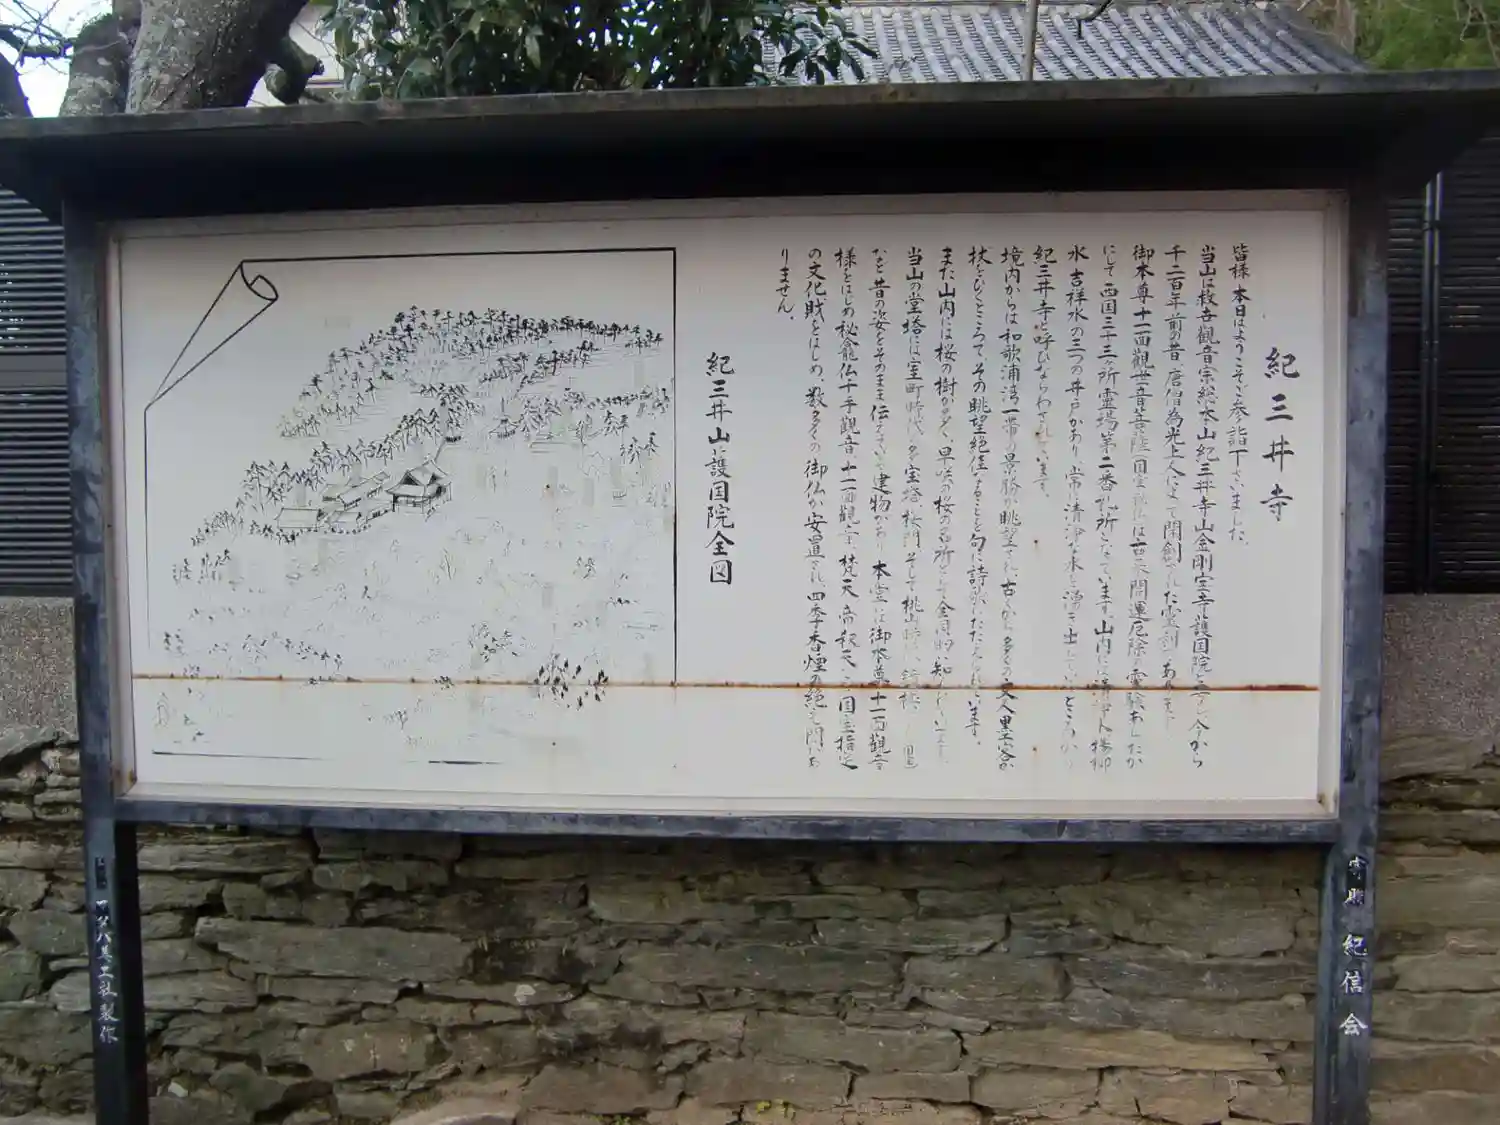 紀三井寺
皆様 本日はようこそご参詣下さいました。
当山は救世觀音宗総本山紀三井寺山金剛宝寺護国院といい、今から
千二百年前の昔、唐僧為光上人によって開創された霊刹であります。
御本尊十一面觀世音菩薩(国宝)秘仏は 開運厄除の霊験あらたか
にして西国三十三ヶ所霊場第二番札所となっています。山内には清浄水 楊柳
水 吉祥水の三つの井戸があり 常に清浄な水を湧き出しているところから
紀三井寺と呼びならわされています。
境内からは和歌浦湾一帯の景勝が眺望され 古くから多くの文人墨客が
杖をひくところで その眺望絶佳なること句に詩歌にたたえられています。
また山内には桜の樹が多く、早咲の桜の名所として全国的に知られています。
当山の堂塔には室町時代の多宝塔、楼門、そして桃山時代の鐘楼
など 昔の姿をそのまま伝えている建物があり 本堂には御本尊十一面觀音
様をはじめ秘龕仏千手觀音、十一面觀音、梵天、帝釈天の国宝指定
の文化財をはじめ、数多くの御仏が安置され、四季香煙の絶え間があ
りません。
紀三井山護国院全図
寄贈 紀信会
工社製作